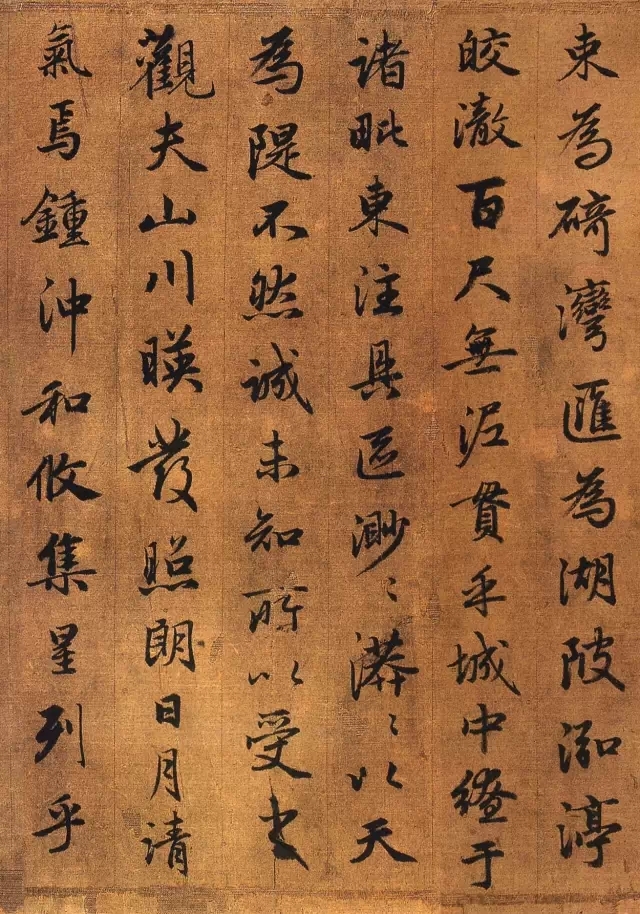 束為碕灣匯為湖陂泓渟
皎澈百尺無泥貫乎城中繚于
諸毗東注具區渺〻漭〻以天
為隄不然誠未知所以受之
觀夫山川暎發照朗日月清
氣焉鍾沖和攸集星列乎